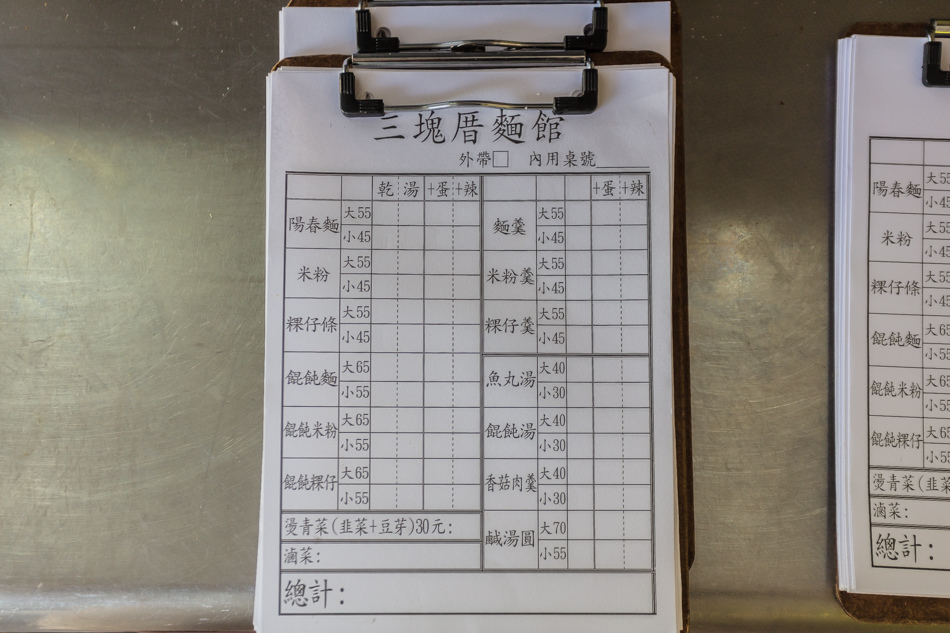 三塊厝麵館
外帶□ 內用桌號
乾 湯 +蛋 +辣
陽春麵 大55
小45
米粉 大55
小45
粿仔條 大55
小45
餛飩麵 大65
小55
餛飩米粉 大65
小55
餛飩粿仔 大65
小55
燙青菜(韭菜+豆芽)30元:
滷菜:
+蛋 +辣
麵羹 大55
小45
米粉羹 大55
小45
粿仔羹 大55
小45
魚丸湯 大40
小30
餛飩湯 大40
小30
香菇肉羹 大40
小30
鹹湯圓 大70
小55
總計:
陽春麵 大55
小45
米粉 大55
小45
粿仔條 大55
小45
餛飩麵 大65
小55
餛飩米粉 大65
小55
餛飩粿仔 大65
小55
燙青菜(韭菜
滷菜:
總計: